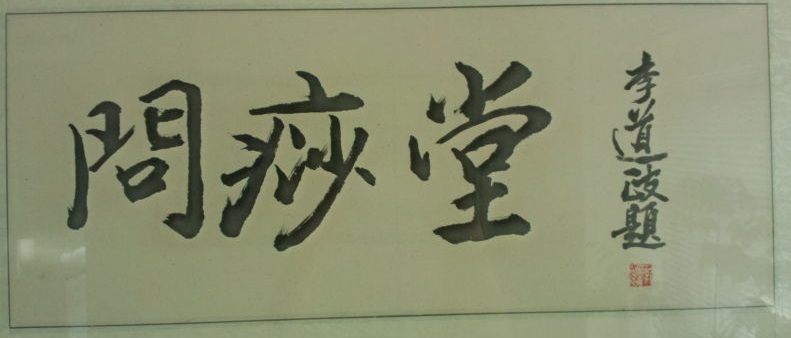 問痧堂
李道政題